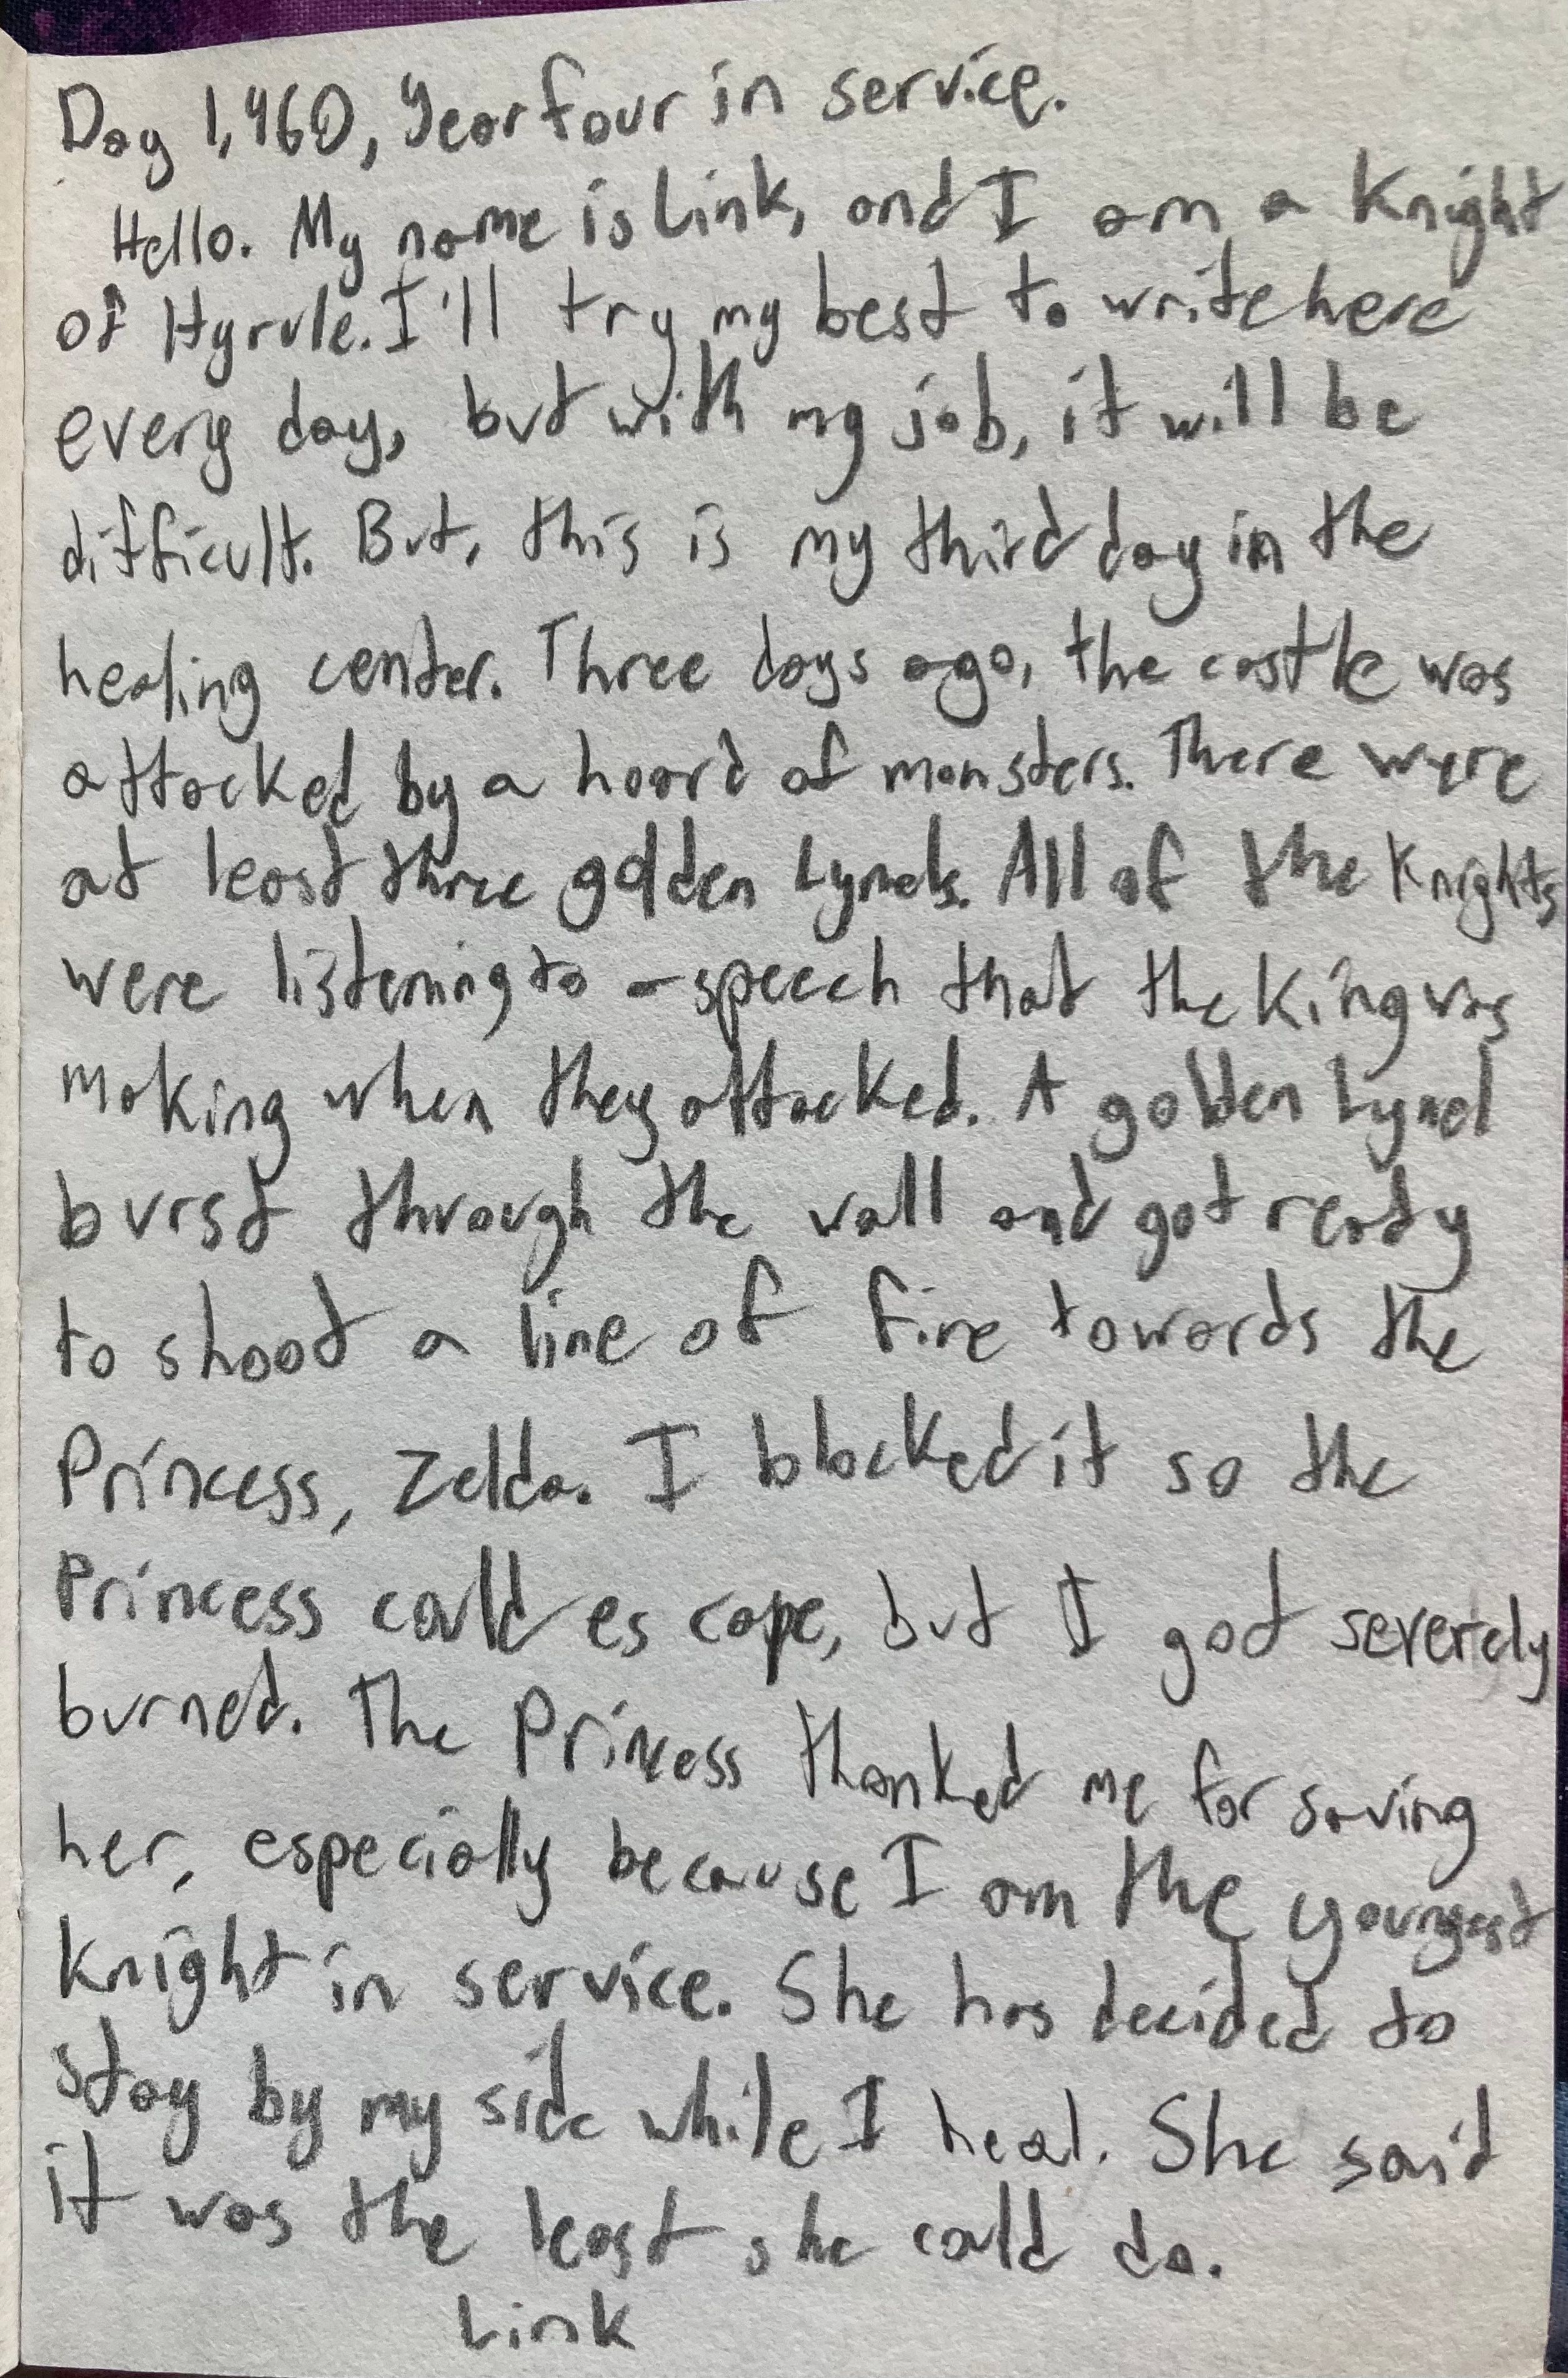 Day 1,460, Year four in service.
Hello. My name is Link, and I am a Knight
of Hyrule. I'll try my best to write here
every day, but with my job, it will be
difficult. But, this is my third day in the
healing center. Three days ago, the castle was
attacked by a hoard of monsters. There were
at least three golden Lynels. All of the Knights
were listening to a speech that the King was
making when they attacked. A golden Lynel
burst through the wall and got ready
to shoot a line of fire towards the
Princess, Zelda. I blocked it so the
Princess could escape, but I got severely
burned. The Princess thanked me for saving
her, especially because I am the youngest
Knight in service. She has decided to
stay by my side while I heal. She said
it was the least she could do.
Link